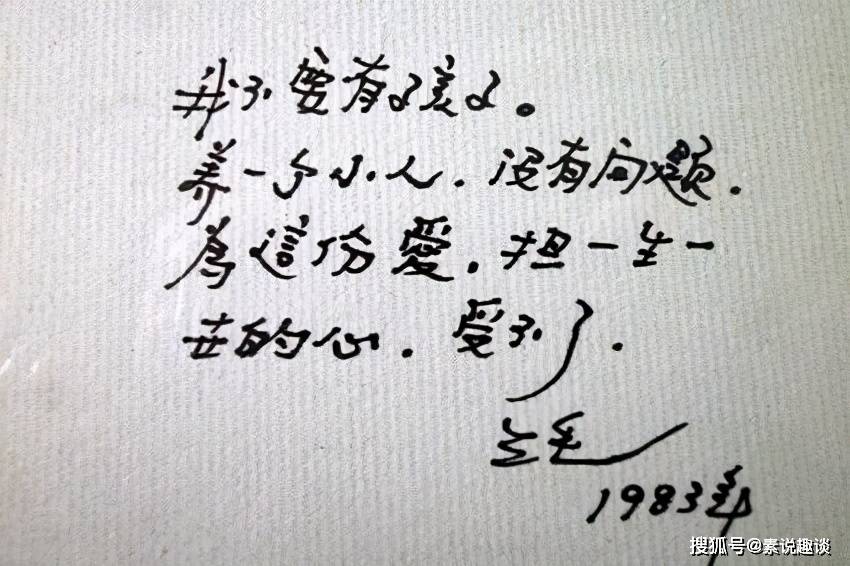 我不要有孩子。
养一个小人.没有问题.
為這份愛.担一生一
世的心.受不了.
三毛
1983年
搜狐号@素说趣谈